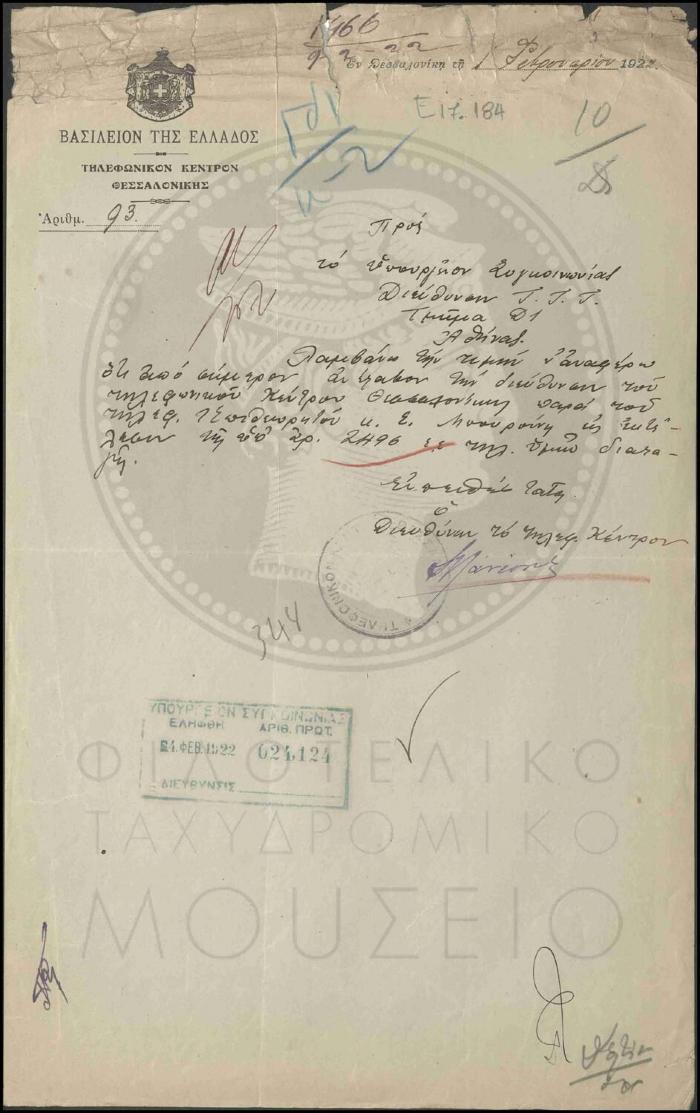 1466
9-2-22
Ἐν Θεσσαλονίκῃ τῇ 1 Φεβρουαρίου 1922
Ε17.184
10
ΒΑΣΙΛΕΙΟΝ ΤΗΣ ΕΛΛΑΔΟΣ
ΤΗΛΕΦΩΝΙΚΟΝ ΚΕΝΤΡΟΝ
ΘΕΣΣΑΛΟΝΙΚΗΣ
Ἀριθμ. 93.
Πρὸς
τὸ Ὑπουργεῖον Συγκοινωνίας
Διεύθυνσιν Τ.Τ.Τ.
Τμῆμα Δ1
Ἀθήνας.
Λαμβάνω τὴν τιμὴν ν' ἀναφέρω
ὅτι ἀπὸ σήμερον ἀνέλαβον τὴν διεύθυνσιν τοῦ
τηλεφωνικοῦ Κέντρου Θεσσαλονίκης παρὰ τοῦ
τηλεφ. Ἐπιθεωρητοῦ κ. Ε. εἰς ἐκτέ-
λεσιν τῆς ὑπ' ἀρ. 2496 τηλ. διατα-
γῆς.
Εὐπειθέστατος
ὁ
Διευθύνων τὸ τηλεφ. Κέντρον
ΤΗΛΕΦΩΝΙΚΟΝ
344
ΥΠΟΥΡΓΕΙΟΝ ΣΥΓΚΟΙΝΩΝΙΑΣ
ΕΛΗΦΘΗ ΑΡΙΘ. ΠΡΩΤ.
24. ΦΕΒ. 1922 024,124
ΔΙΕΥΘΥΝΣΙΣ
ΦΙΛΟΤΕΛΙΚΟ
ΤΑΧΥΔΡΟΜΙΚΟ
ΜΟΥΣΕΙΟ